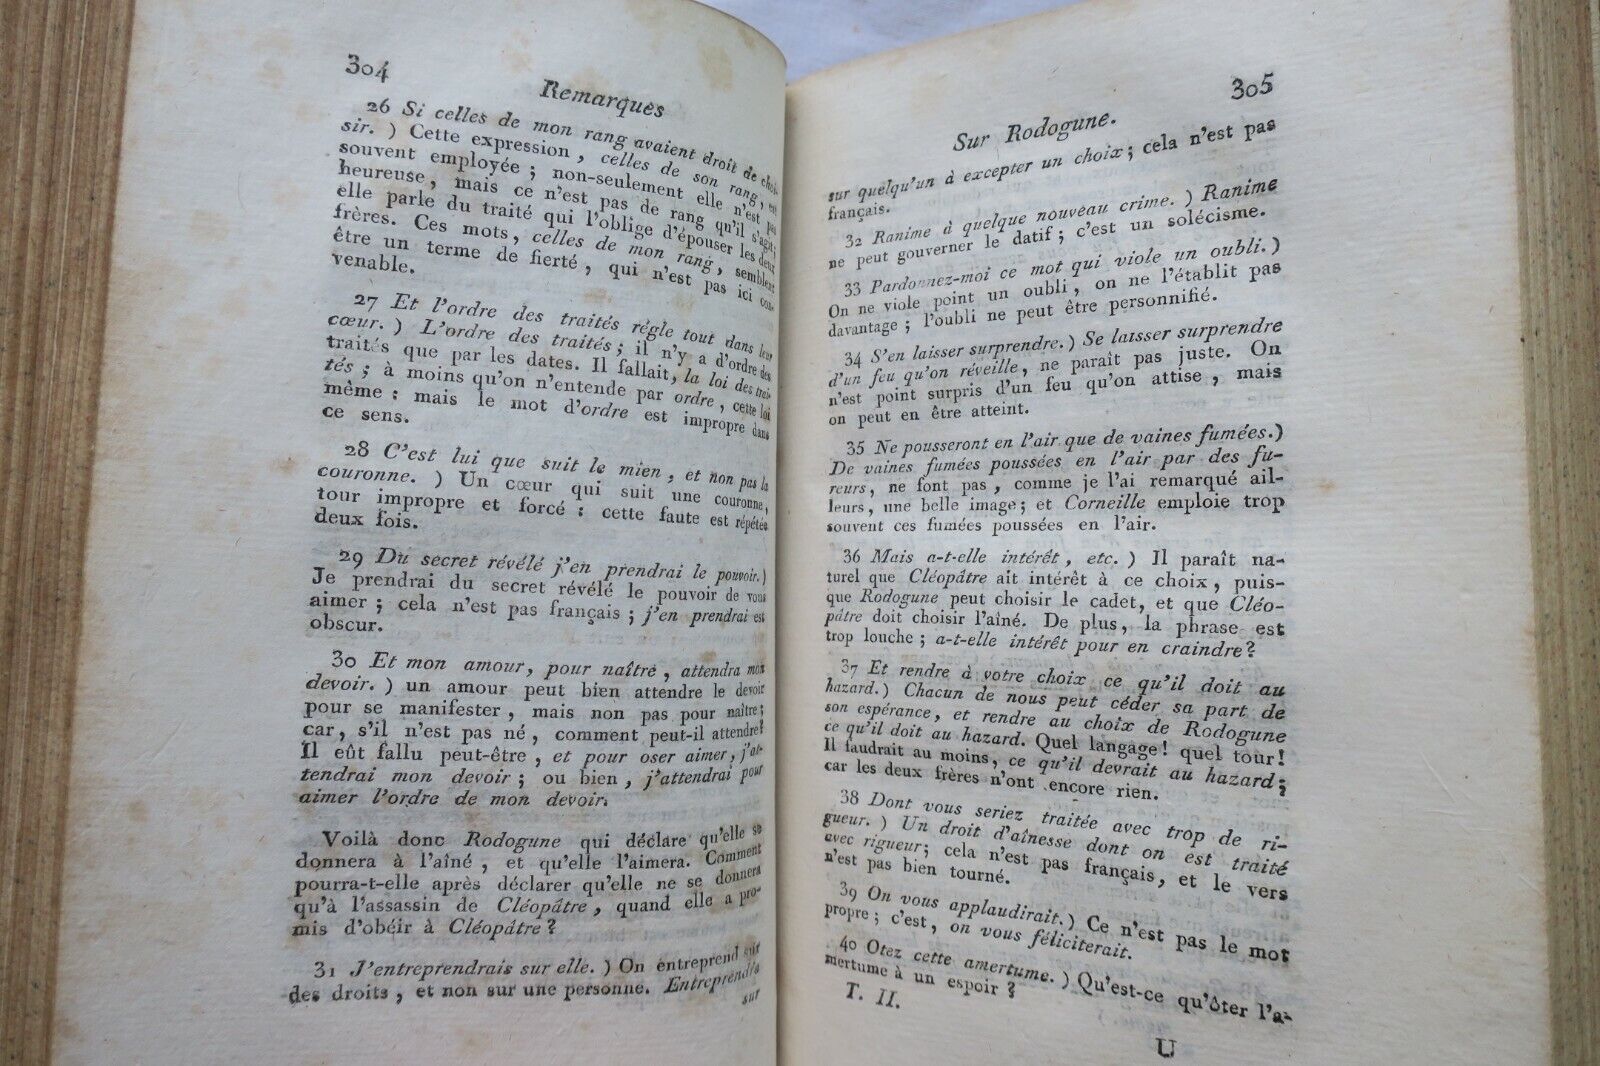 304
Remarques
26 Si celles de mon rang avaient droit de choi-
sir. ) Cette expression, celles de son rang, est
souvent employée ; non-seulement elle n'est pas
heureuse, mais ce n'est pas de rang qu'il s'agit;
elle parle du traité qui l'oblige d'épouser les deux
frères. Ces mots, celles de mon rang, semblent
être un terme de fierté, qui n'est pas ici con-
venable.
27 Et l'ordre des traités règle tout dans leur
cœur. ) L'ordre des traités ; il n'y a d'ordre des
traités que par les dates. Il fallait, la loi des trai-
tés ; à moins qu'on n'entende par ordre, cette loi
même : mais le mot d'ordre est impropre dans
ce sens.
28 C'est lui que suit le mien, et non pas la
couronne. ) Un cœur qui suit une couronne,
tour impropre et forcé : cette faute est répétée
deux fois.
29 Du secret révélé j'en prendrai le pouvoir.)
Je prendrai du secret révélé le pouvoir de vous
aimer ; cela n'est pas français ; j'en prendrai est
obscur.
30 Et mon amour, pour naître, attendra mon
devoir. ) un amour peut bien attendre le devoir
pour se manifester, mais non pas pour naître;
car, s'il n'est pas né, comment peut-il attendre?
Il eût fallu peut-être, et pour oser aimer, j'at-
tendrai mon devoir ; ou bien, j'attendrai pour
aimer l'ordre de mon devoir.
Voilà donc Rodogune qui déclare qu'elle se
donnera à l'aîné, et qu'elle l'aimera. Comment
pourra-t-elle après déclarer qu'elle ne se donnera
qu'à l'assassin de Cléopâtre, quand elle a pro-
mis d'obéir à Cléopâtre ?
31 J'entreprendrais sur elle. ) On entreprend sur
des droits, et non sur une personne. Entreprendre
sur
305
Sur Rodogune.
sur quelqu'un à excepter un choix ; cela n'est pas
français.
32 Ranime à quelque nouveau crime. ) Ranime
ne peut gouverner le datif ; c'est un solécisme.
33 Pardonnez-moi ce mot qui viole un oubli.)
On ne viole point un oubli, on ne l'établit pas
davantage ; l'oubli ne peut être personnifié.
34 S'en laisser surprendre.) Se laisser surprendre
d'un feu qu'on réveille, ne paraît pas juste. On
n'est point surpris d'un feu qu'on attise, mais
on peut en être atteint.
35 Ne pousseront en l'air que de vaines fumées.)
De vaines fumées poussées en l'air par des fu-
reurs, ne font pas, comme je l'ai remarqué ail-
leurs, une belle image; et Corneille emploie trop
souvent ces fumées poussées en l'air.
36 Mais a-t-elle intérêt, etc. ) Il paraît na-
turel que Cléopâtre ait intérêt à ce choix, puis-
que Rodogune peut choisir le cadet, et que Cléo-
pâtre doit choisir l'aîné. De plus, la phrase est
trop louche ; a-t-elle intérêt pour en craindre ?
37 Et rendre à votre choix ce qu'il doit au
hazard.) Chacun de nous peut céder sa part de
son espérance, et rendre au choix de Rodogune
ce qu'il doit au hazard. Quel langage! quel tour!
Il faudrait au moins, ce qu'il devrait au hazard;
car les deux frères n'ont encore rien.
38 Dont vous seriez traitée avec trop de ri-
gueur. ) Un droit d'aînesse dont on est traité
avec rigueur; cela n'est pas français, et le vers
n'est pas bien tourné.
39 On vous applaudirait.) Ce n'est pas le mot
propre ; c'est, on vous féliciterait.
40 Otez cette amertume. ) Qu'est-ce qu'ôter l'a-
mertume à un espoir ?
T. II.
U